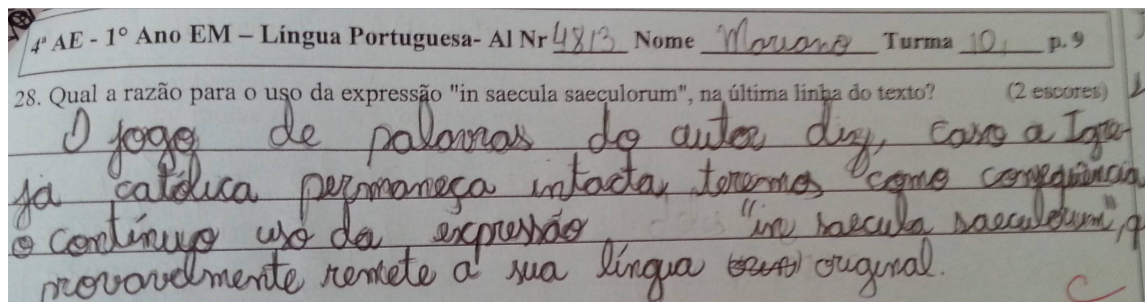 4ª AE - 1º Ano EM – Língua Portuguesa- Al Nr 4813 Nome Mariano Turma 101 p. 9
28. Qual a razão para o uso da expressão "in saecula saeculorum", na última linha do texto? (2 escores)
O jogo de palavras do autor diz, caso a Igre-
ja católica permaneça intacta, teremos como conequência
o contínuo uso da expressão "in saecula saeculorum", q
provavelmente remete a sua língua original.
C